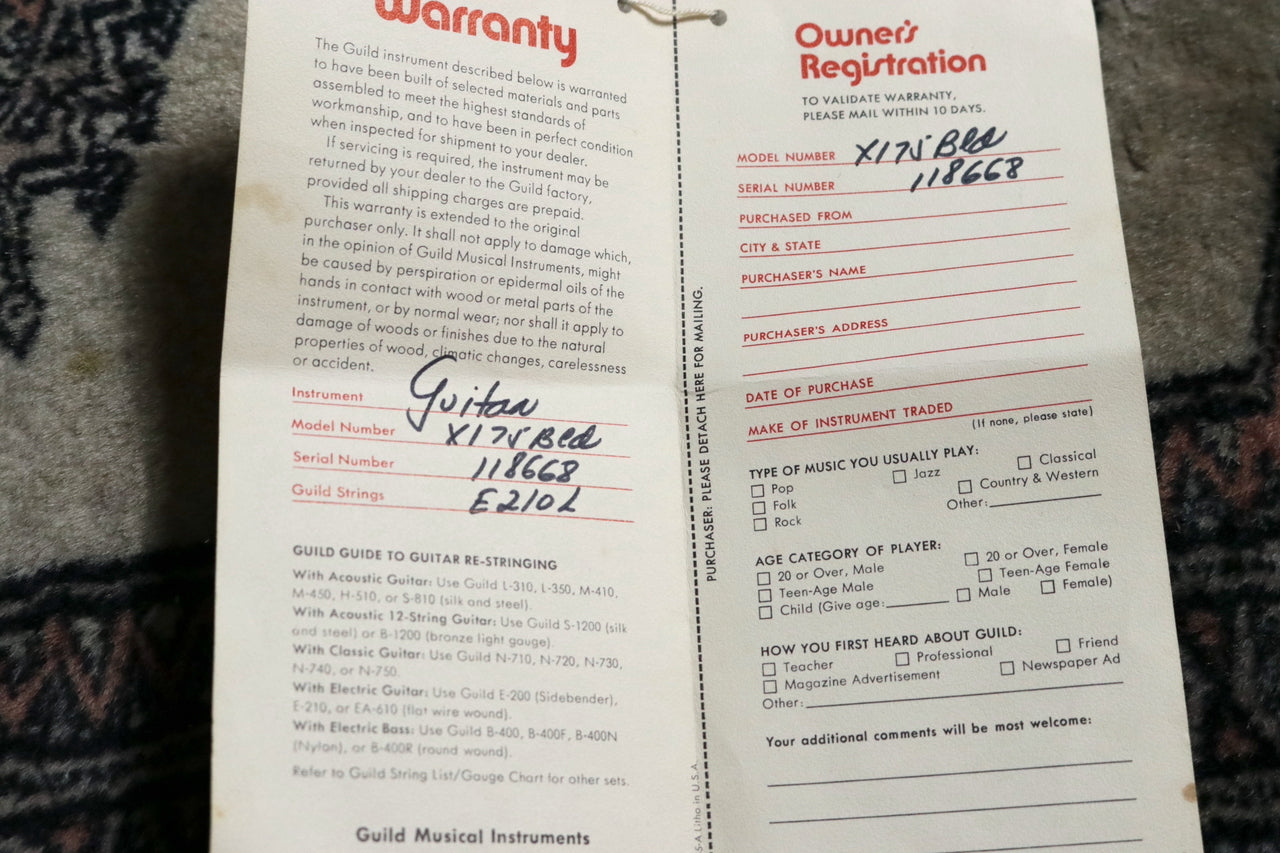 Warranty
The Guild instrument described below is warranted
to have been built of selected materials and parts
assembled to meet the highest standards of
workmanship, and to have been in perfect condition
when inspected for shipment to your dealer.
If servicing is required, the instrument may be
returned by your dealer to the Guild factory,
provided all shipping charges are prepaid.
This warranty is extended to the original
purchaser only. It shall not apply to damage which,
in the opinion of Guild Musical Instruments, might
be caused by perspiration or epidermal oils of the
hands in contact with wood or metal parts of the
instrument, or by normal wear; nor shall it apply to
damage of woods or finishes due to the natural
properties of wood, climatic changes, carelessness
or accident.
Instrument Guitar
Model Number X175 Bld
Serial Number 118668
Guild Strings E210L
GUILD GUIDE TO GUITAR RE-STRINGING
With Acoustic Guitar: Use Guild L-310, L-350, M-410,
M-450, H-510, or S-810 (silk and steel).
With Acoustic 12-String Guitar: Use Guild S-1200 (silk
and steel) or B-1200 (bronze light gauge).
With Classic Guitar: Use Guild N-710, N-720, N-730,
N-740, or N-750.
With Electric Guitar: Use Guild E-200 (Sidebender),
E-210, or EA-610 (flat wire wound).
With Electric Bass: Use Guild B-400, B-400F, B-400N
(Nylon), or B-400R (round wound).
Refer to Guild String List/Gauge Chart for other sets.
Guild Musical Instruments
PURCHASER: PLEASE DETACH HERE FOR MAILING.
S-A Litho in U.S.A.
Owner's
Registration
TO VALIDATE WARRANTY,
PLEASE MAIL WITHIN 10 DAYS.
MODEL NUMBER X175 Bld
SERIAL NUMBER 118668
PURCHASED FROM
CITY & STATE
PURCHASER'S NAME
PURCHASER'S ADDRESS
DATE OF PURCHASE
MAKE OF INSTRUMENT TRADED
(If none, please state)
TYPE OF MUSIC YOU USUALLY PLAY:
Pop Jazz Classical
Folk Country & Western
Rock Other:
AGE CATEGORY OF PLAYER:
20 or Over, Male 20 or Over, Female
Teen-Age Male Teen-Age Female
Child (Give age: Male Female)
HOW YOU FIRST HEARD ABOUT GUILD:
Teacher Professional Friend
Magazine Advertisement Newspaper Ad
Other:
Your additional comments will be most welcome: